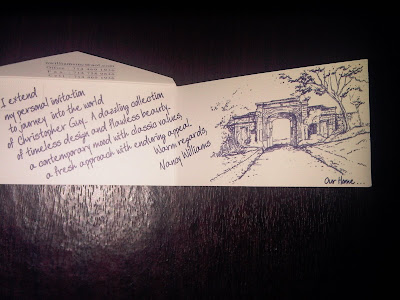 I extend
my personal invitation
to journey into the world
of Christopher Guy. A dazzling collection
of timeless design and flawless beauty-
a contemporary mood with classic values,
a fresh approach with enduring appeal.
Warm regards,
Nancy Williams
Our Home...